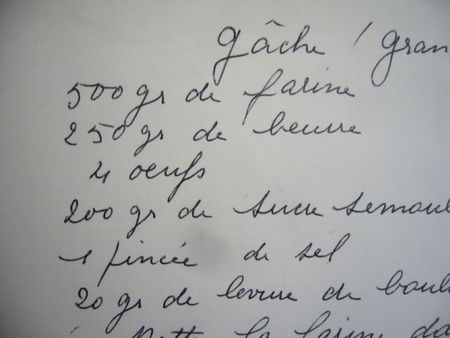 Gâche / Gran
500 gr de farine
250 gr de beurre
4 oeufs
200 gr de sucre semoul
1 pincée de sel
20 gr de levure de boul
la farine da